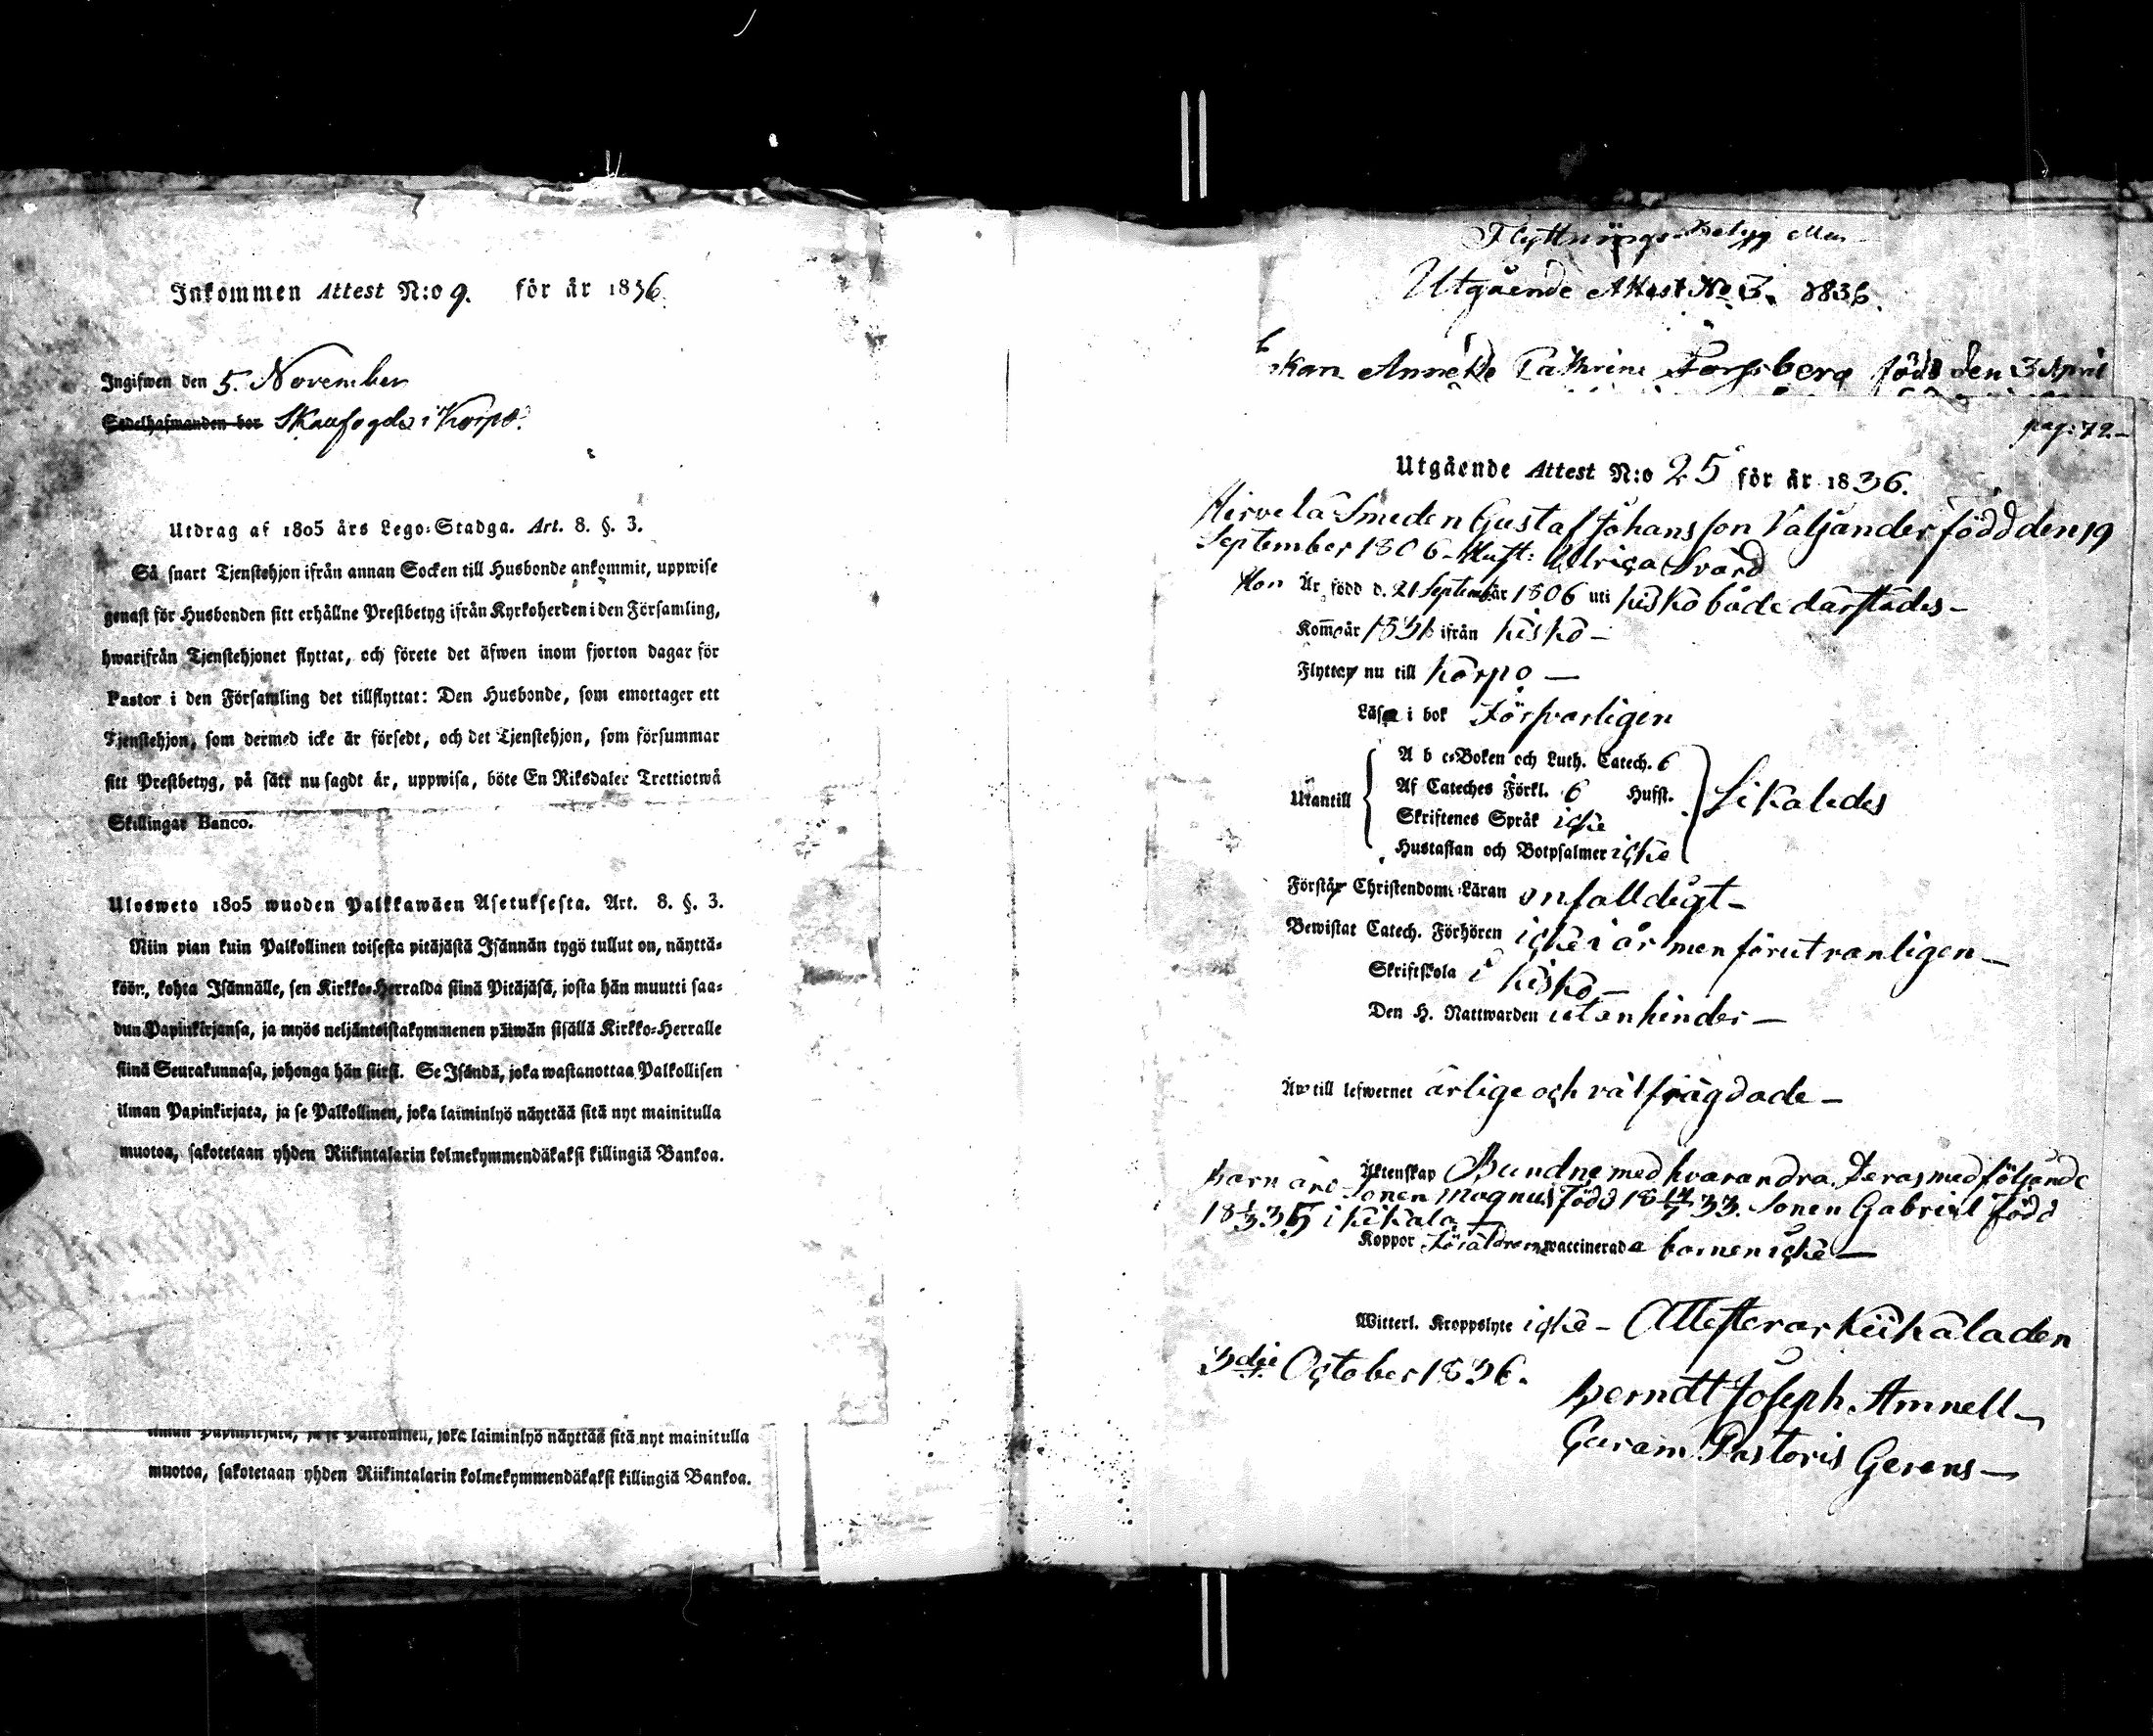 Inkommen Attest N:o 9. för år 1836
Ingifwen den 5. November
Sedelhafwanden bor Skaufogda i Korpo.
Utdrag af 1805 års Lego-Stadga. Art. 8. §. 3.
Så snart Tjenstehjon ifrån annan Socken till Husbonde ankommit, uppwise
genast för Husbonden sitt erhållne Prestbetyg ifrån Kyrkoherden i den Församling,
hwarifrån Tjenstehjonet flyttat, och förete det äfwen inom fjorton dagar för
Pastor i den Församling det tillflyttat: Den Husbonde, som emottager ett
Tjenstehjon, som dermed icke är försedt, och det Tjenstehjon, som försummar
sitt Prestbetyg, på sätt nu sagdt är, uppwisa, böte En Riksdaler Trettiotwå
Skillingar Banco.
Ulosweto 1805 wuoden Palkkawäen Asetuksesta. Art. 8. §. 3.
Niin pian kuin Palkollinen toisesta pitäjästä Isännän tygö tullut on, näyttä-
köön, kohta Isännälle, sen Kirkko-Herralda siinä Pitäjäsä, josta hän muutti saa-
dun Papinkirjansa, ja myös neljäntoistakymmenen päiwän sisällä Kirkko-Herralle
siinä Seurakunnasa, johonga hän siirsi. Se Isändä, joka wastanottaa Palkollisen
ilman Papinkirjata, ja se Palkollinen, joka laiminlyö näyttää sitä nyt mainitulla
muotoa, sakotetaan yhden Riikintalarin kolmekymmendäkaksi killingiä Bankoa.
ilman Papinkirjata, ja se Palkollinen, joka laiminlyö näyttää sitä nyt mainitulla
muotoa, sakotetaan yhden Riikintalarin kolmekymmendäkaksi killingiä Bankoa.
Flyttnings-Betyg
Utgående Attest No 3. 1836.
Cathrina Forsberg född den 3 April
pag: 72.
Utgående Attest N:o 25 för år 1836.
Hirvelä Smeden Gustaf Johansson Valjander född den 19
September 1806 - Hust: Ulrica Svärd
Hon Är född d. 21 September år 1806 uti Kisko både därstädes -
Kom år ifrån Kisko -
Flytta nu till Korpo -
Läsa i bok Försvarligen
Utantill
A b c-Boken och Luth. Catech. 6
Af Cateches Förkl. 6 Hufst.
Skriftenes Språk icke
Hustaflan och Botpsalmer icke
Likaledes
Förstår Christendoms-Läran enfalldigt -
Bewistat Catech. Förhören icke i år men förut vanligen -
Skriftskola i Kisko -
Den H. Nattwarden utan hinder -
Är till lefwernet ärlige och välfrägdade -
Äktenskap Bundne med hvarandra. Deras medföljande
barn äro Sonen Magnus född 18 14/7 33. Sonen Gabriel född
18 1/3 35 i Kikala
Koppor Föräldrarne waccinerada barnen icke -
Witterl. Kroppslyte icke - Attesterar Kiikala den
3die October 1836.
Berndt Joseph Amnell
Curam Pastoris Gerens -